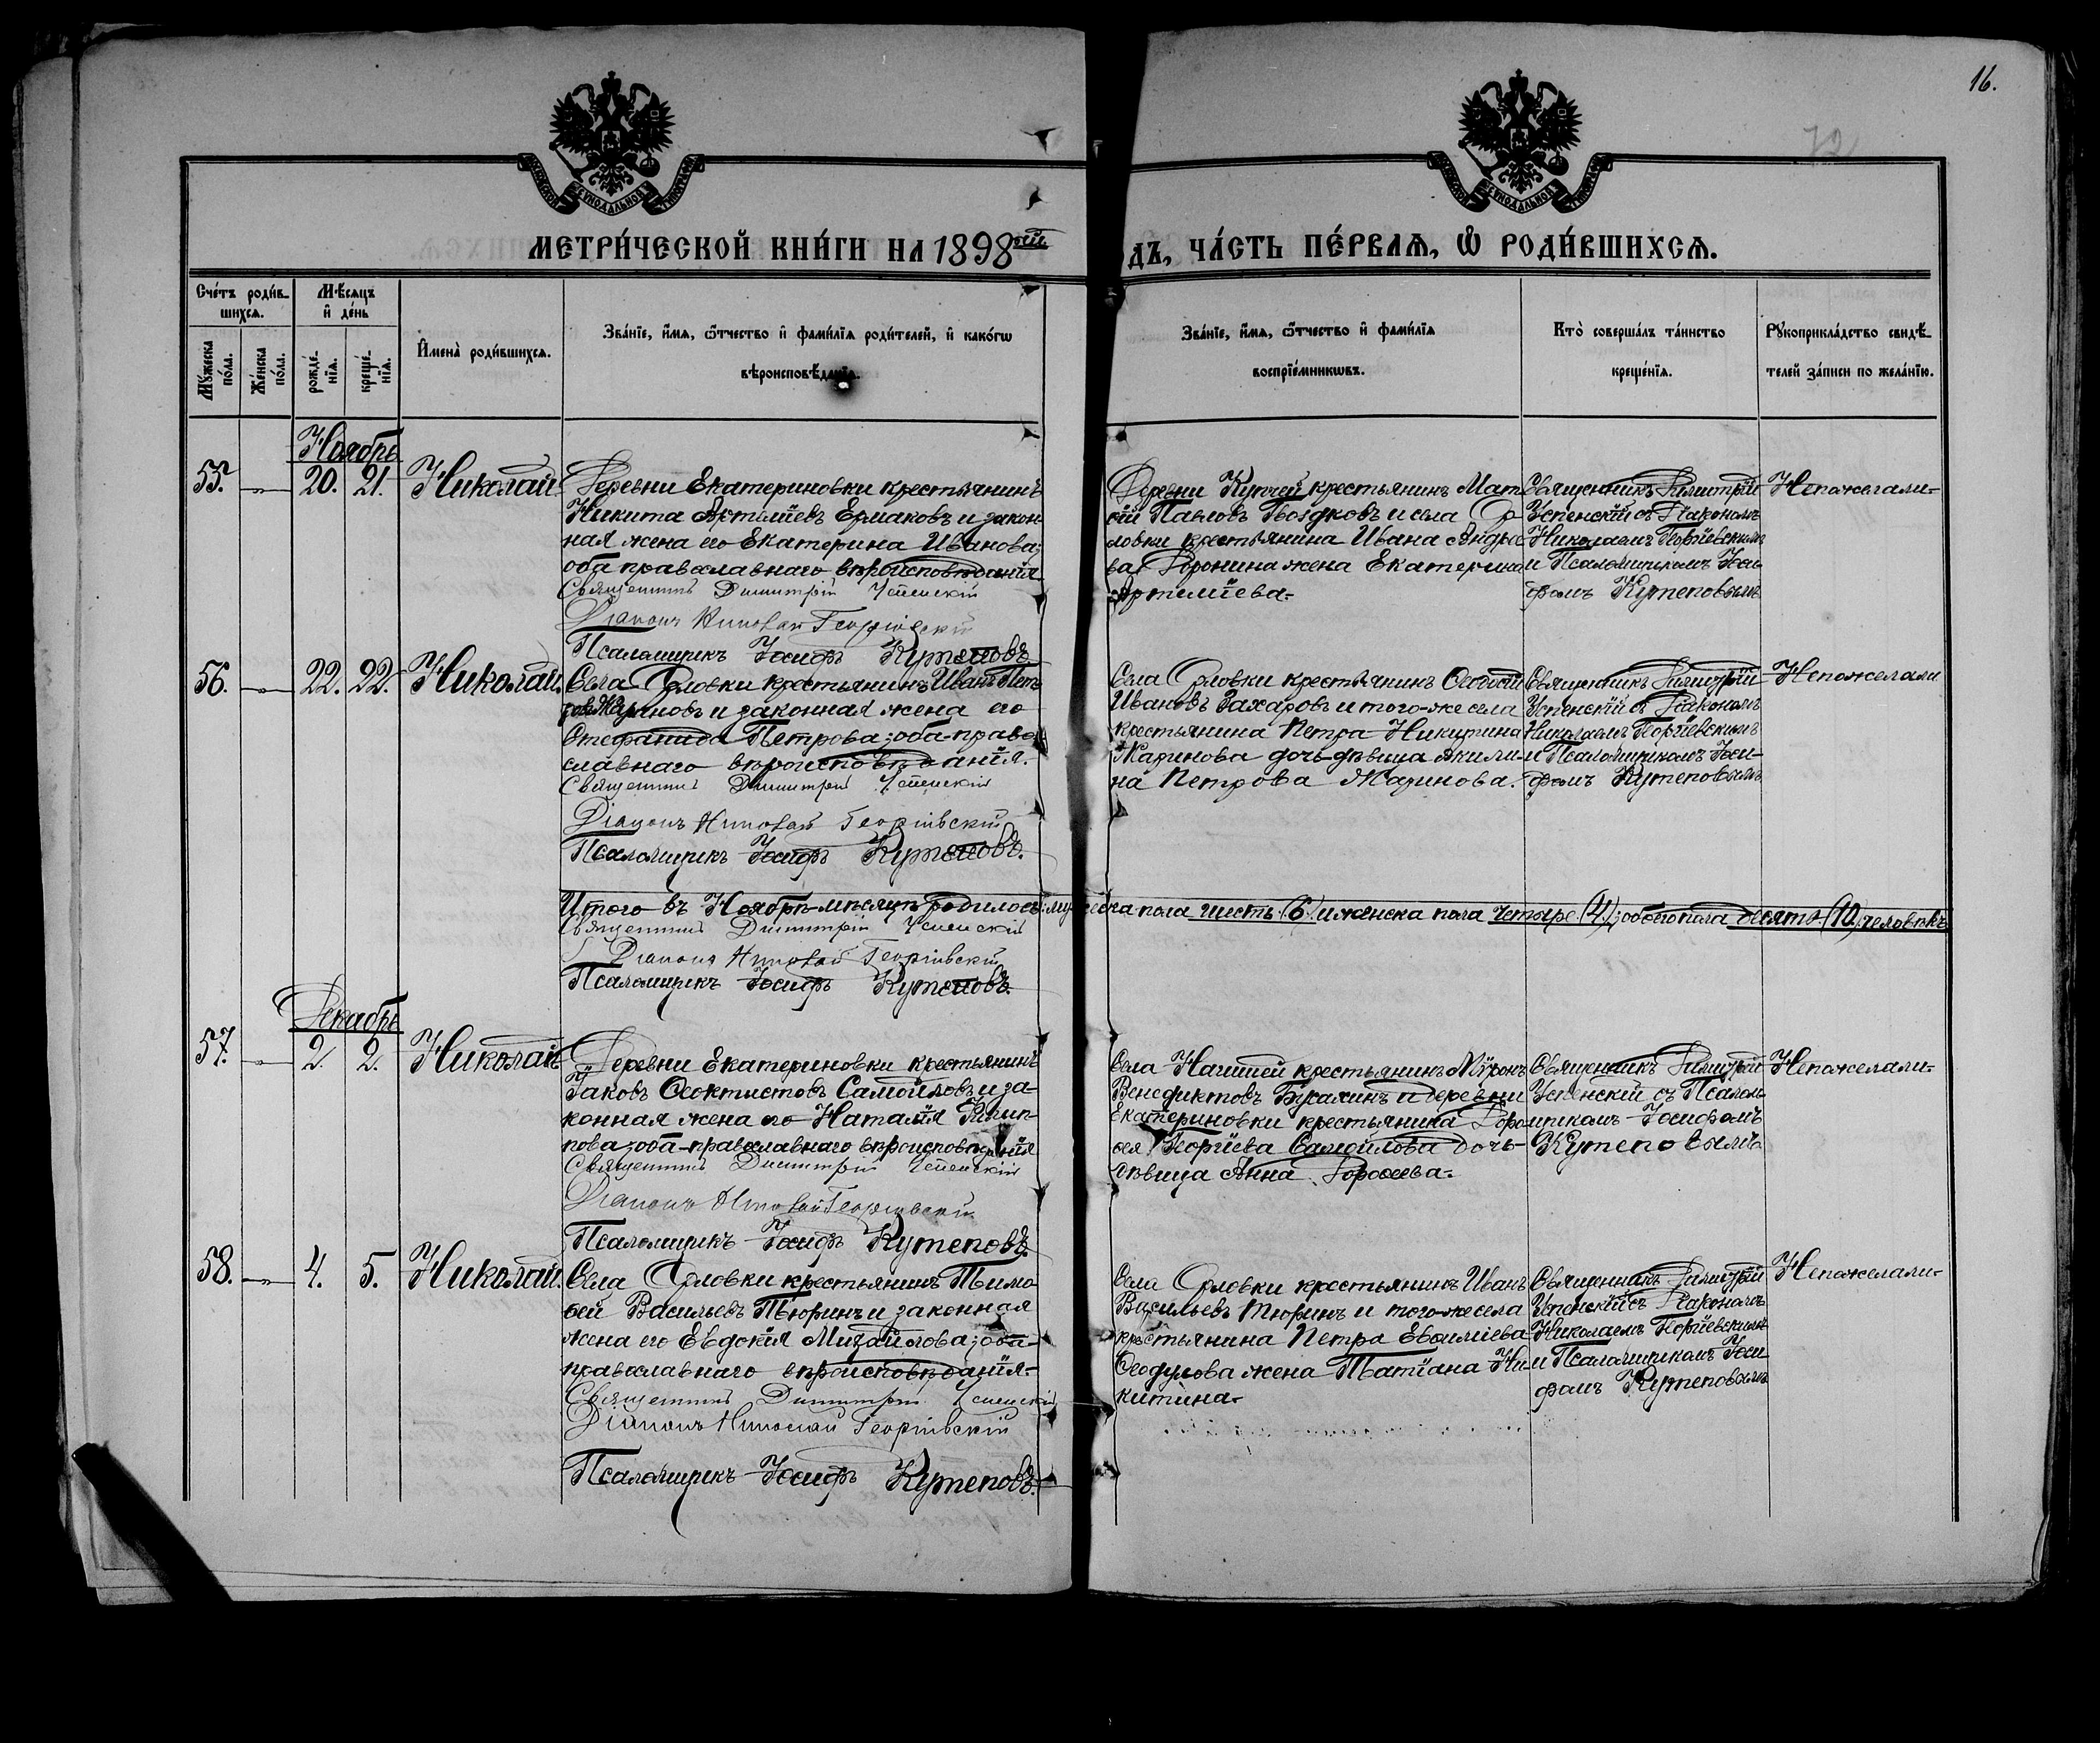 16.
72
МЕТРИ́ЧЕСКОЙ КНИ́ГИ НА 1898ый
ДЪ, ЧА́СТЬ ПЕ́РВАѦ, Ѽ РОДИ́ВШИХСѦ.
Сче́тъ роди́в-
шихсѧ.
Мѣ́сѧцъ
и҆ де́нь
Мꙋ́жеска
по́ла.
Же́нска
по́ла.
рожде́-
нїѧ.
креще́-
нїѧ.
И҆мена̀ роди́вшихсѧ.
Зва́нїе, и҆́мѧ, ѻ҆́тчество и҆ фами́лїѧ роди́телей, и҆ како́гѡ
вѣроисповѣ́данїѧ.
Зва́нїе, и҆́мѧ, ѻ҆́тчество и҆ фами́лїѧ
воспрїе́мникѡвъ.
Кто̀ соверша́лъ та́инство
креще́нїѧ.
Рꙋкоприкла́дство свидѣ́-
телей за́писи по жела́нїю.
Ноябрь
55. 20. 21. Николай.
Деревни Екатериновки крестьянинъ
Никита Артемiевъ Ермаковъ и закон-
ная жена его Екатерина Иванова;
оба православнаго вѣроисповѣданiя.
Священникъ Димитрiй Успенскiй
Дiаконъ Николай Георгiевскiй
Псаломщикъ Iосифъ Кутеповъ
Деревни Купчей крестьянинъ Мат-
ѳiй Павловъ Гвоздковъ и села Ор-
ловки крестьянина Ивана Андрее-
ва Воронина жена Екатерина
Артемiева.
Священникъ Димитрiй
Успенскiй съ Дiакономъ
Николаемъ Георгiевскимъ
и Псаломщикомъ Iоси-
фомъ Кутеповымъ
Непожелали.
56. 22. 22. Николай.
Села Орловки крестьянинъ Иванъ Пет-
ровъ Жариновъ и законная жена его
Стефанида Петрова; оба право-
славнаго вѣроисповѣданiя.
Священникъ Димитрiй Успенскiй
Дiаконъ Николай Георгiевскiй
Псаломщикъ Iосифъ Кутеповъ.
Села Орловки крестьянинъ Ѳеодосiй
Ивановъ Захаровъ и того-же села
крестьянина Петра Никитина
Жаринова дочь-дѣвица Акили-
на Петрова Жаринова.
Священникъ Димитрiй
Успенскiй съ Дiакономъ
Николаемъ Георгiевскимъ
и Псаломщикомъ Iоси-
фомъ Кутеповымъ
Непожелали
Итого въ Ноябрѣ-мѣсяцѣ родилось: мужеска пола шесть (6) и женска пола четыре (4); обоего пола десять (10) человѣкъ
Священникъ Димитрiй Успенскiй
Дiаконъ Николай Георгiевскiй
Псаломщикъ Iосифъ Кутеповъ.
Декабрь
57. 2. 2. Николай
Деревни Екатериновки крестьянинъ
Iаковъ Ѳеоктистовъ Самойловъ и за-
конная жена его Наталiя Филип-
пова; оба-православнаго вѣроисповѣданiя
Священникъ Димитрiй Успенскiй
Дiаконъ Николай Георгiевскiй
Псаломщикъ Iосифъ Кутеповъ.
Села Начиней крестьянинъ Мѵронъ
Венедиктовъ и деревни
Екатериновки крестьянина Доро-
ѳея Георгiева Самойлова дочь-
дѣвица Анна Дороѳеева.
Священникъ Димитрiй
Успенскiй съ Псалом-
щикомъ Iосифомъ
Кутеповымъ
Непожелали.
58. 4. 5. Николай.
Села Орловки крестьянинъ Тимо-
ѳей Васильевъ Тюринъ и законная
жена его Евдокiя Михайлова; оба
православнаго вѣроисповѣданiя.
Священникъ Димитрiй Успенскiй
Дiаконъ Николай Георгiевскiй
Псаломщикъ Iосифъ Кутеповъ.
Села Орловки крестьянинъ Иванъ
Васильевъ Тюринъ и того-же села
крестьянина Петра Евѳимiева
Ѳеодулова жена Татiана Ни-
китина.
Священникъ Димитрiй
Успенскiй съ Дiакономъ
Николаемъ Георгiевскимъ
и Псаломщикомъ Iоси-
фомъ Кутеповымъ
Непожелали.